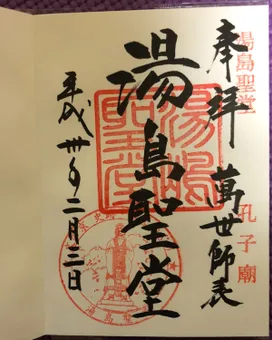 湯島聖堂 孔子廟
奉拝 萬世師表
湯島聖堂
平成卅年二月三日
湯島
聖堂